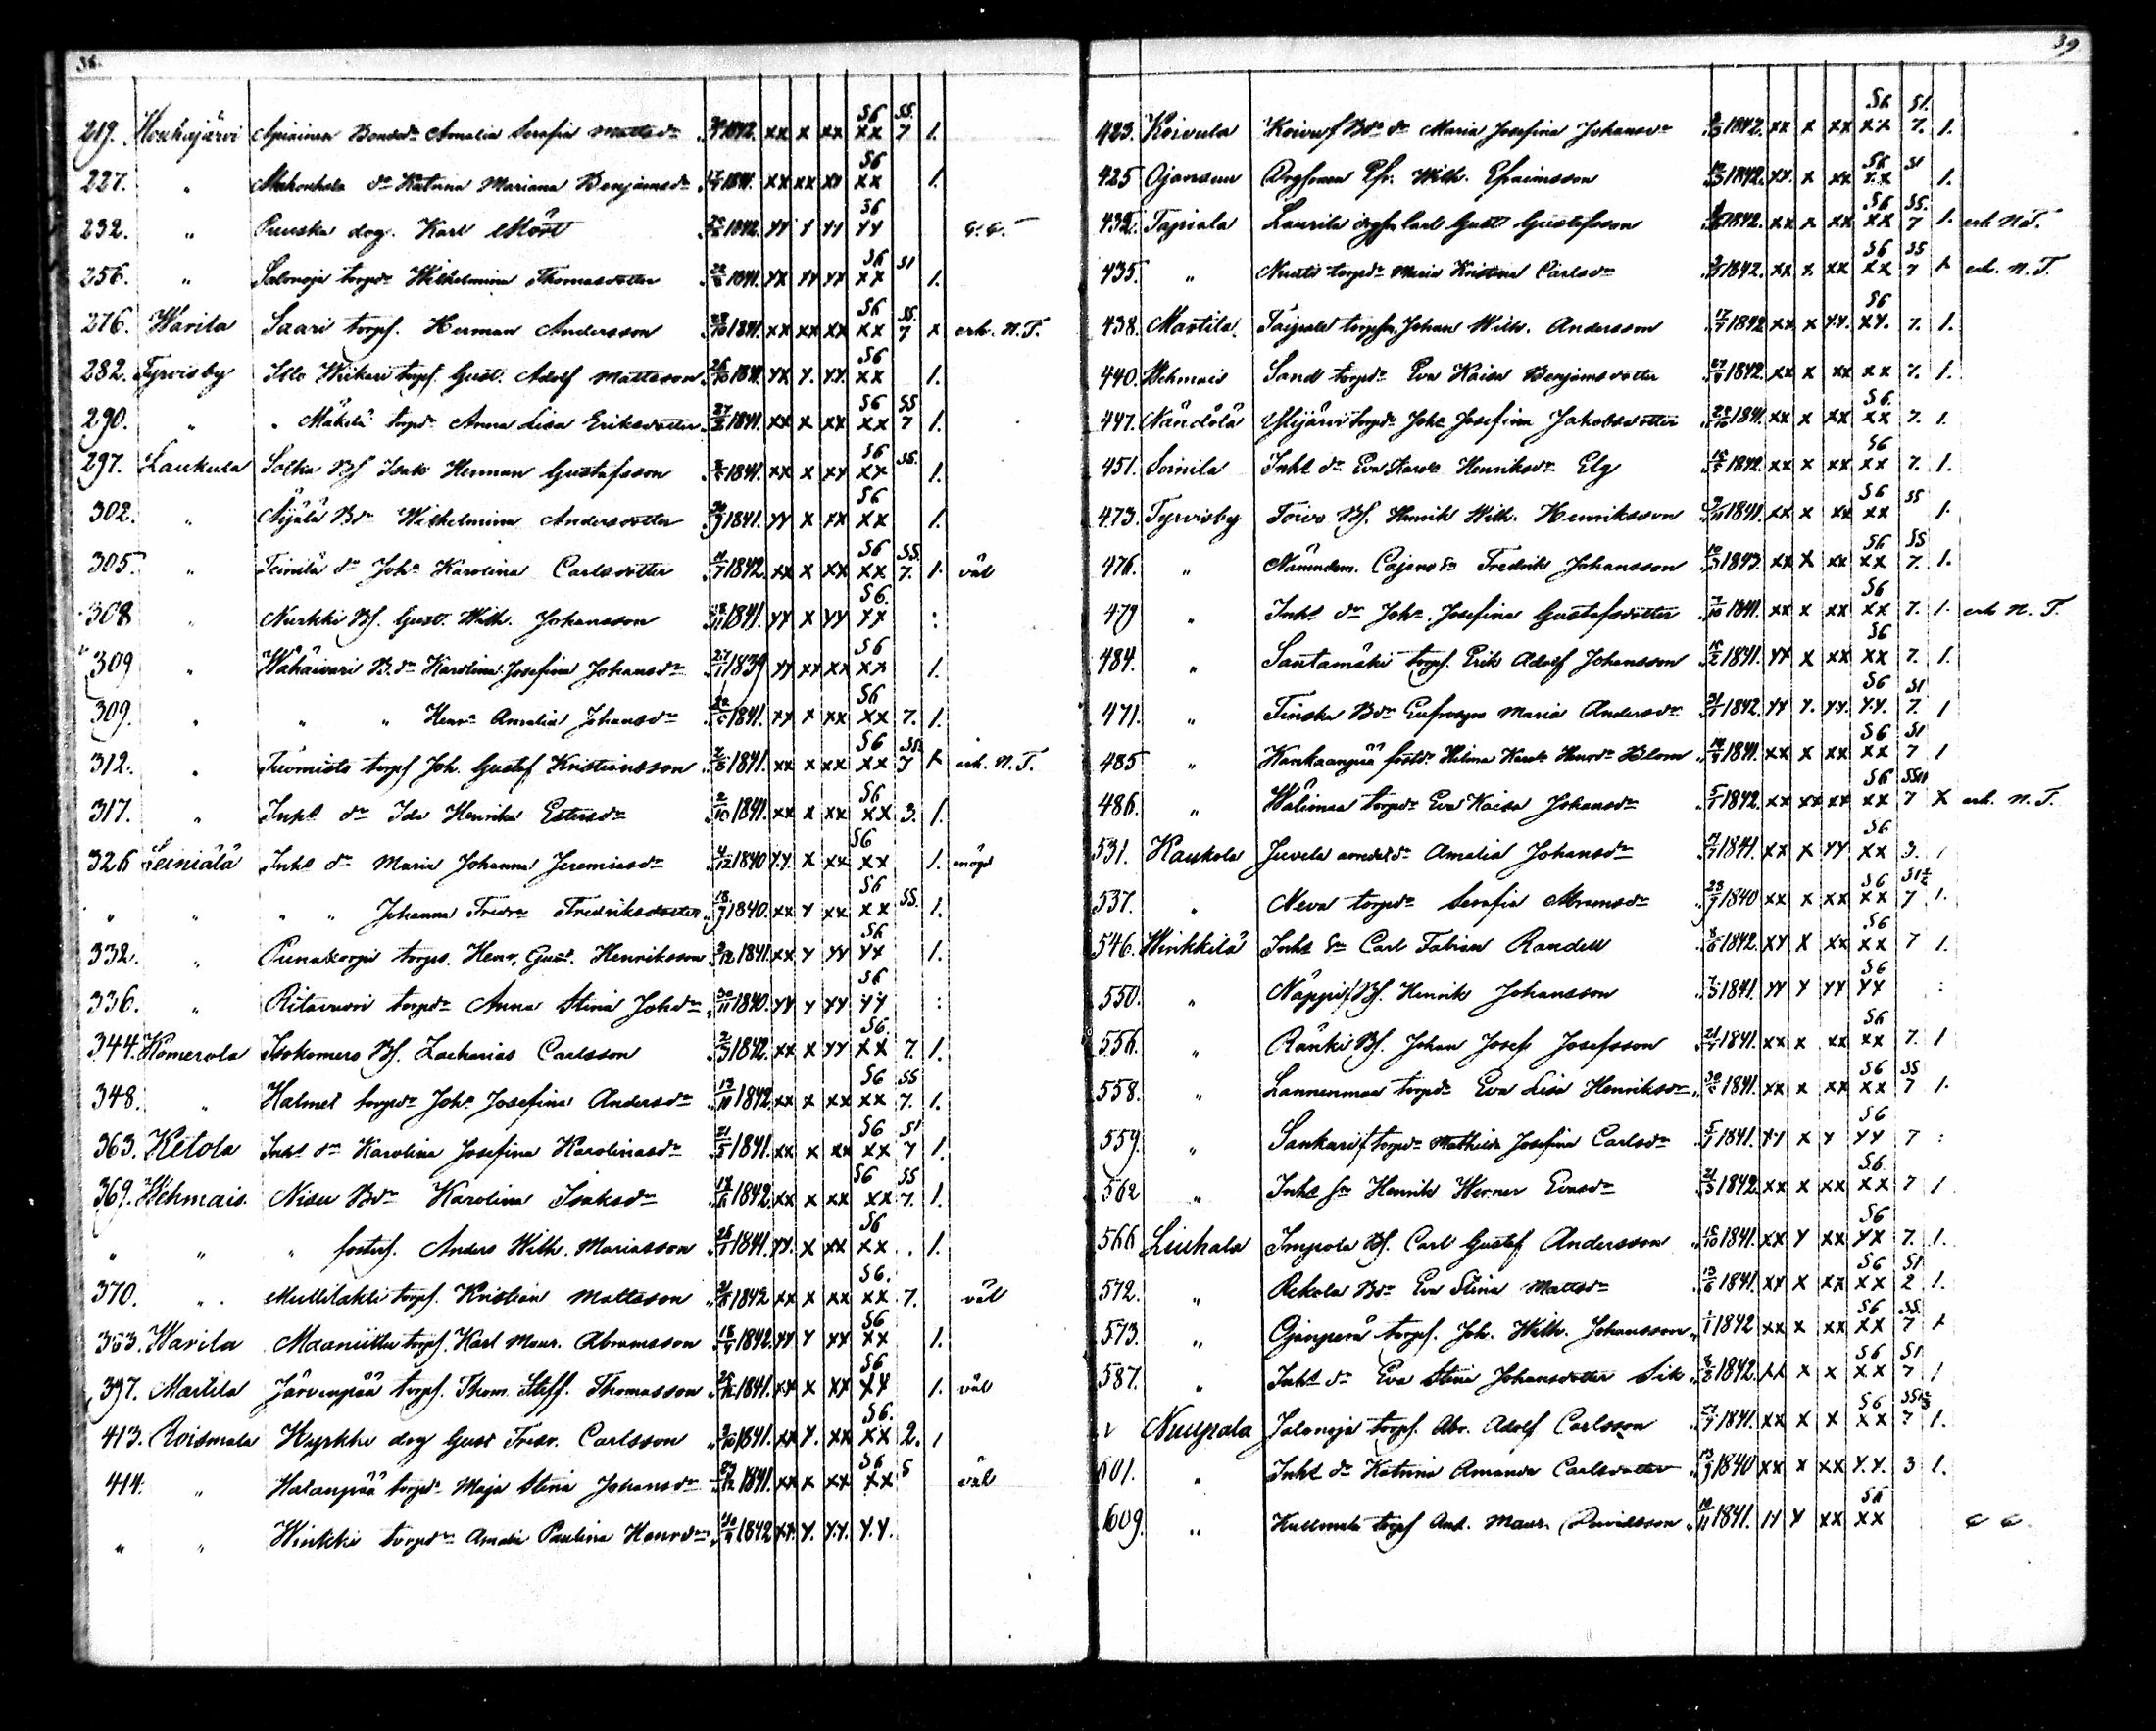 38.
219. Houhajärvi Apiainen Bonded:r Amalia Serafia Mattsd:r 1842. xx x xx 56 xx 55. 7 1.
227. " d:r Katrina Mariana Benjamsd:r 1841. xx xx xx 56 xx 1.
232. " Punska dog. Karl Möst 1842. xx x xx 56 xx
256. " Salonoja torpd:r Wilhelmina Thomasdotter 1841. xx xx xx 56 xx 51 1.
276. Warila Saari torpf. Herman Andersson 1841. xx xx xx 56 xx 55. 7 x erh. N.T.
282. Tyrvisby Illo Wiikari torpf. Gust. Adolf Mattsson 1841. xx x. xx. 56 xx 1.
290. " " Mäkelä torpd:r Anna Lisa Eriksdotter 27/2 1841. xx x xx 56 xx 55 7 1.
297. Laukula Sotka Bf Isak Herman Gustafsson 1841. xx x xx 56 xx 55. 1.
302. " Äijälä Bd:r Wilhelmina Andersdotter 1841. xx x xx 56 xx 1.
305. " Teinilä d:r Joh:a Karolina Carlsdotter 1842. xx x xx 56 xx 55. 7. 1. väl
308 " Nurkki Bf. Gust. Wilh. Johansson 1841. xx x xx 56. xx :
309 " Wähäwari B.d:r Karolina Josefina Johansd:r 27/1 1839 xx xx xx 56 xx 1.
309. " " " Henr:a Amalia Johansd:r 1841. xx x xx 56 xx 7. 1.
312. " Tuomisto torpf Joh. Gustaf Kristiansson 1841. xx x xx 56 xx 55. 7 x erh. N.T.
317. " Inh:s d:r Ida Henrika Estersd:r 2/10 1841. xx x xx 56 xx 3. 1.
326 Leiniälä Inh:s d:r Maria Johanna Jeremiasd:r 4/12 1840 xx. x xx 56 xx 1. nöjd
" " " " Johanna Fredr:a Fredriksdotter 18/9 1840. xx x xx 56 xx 55. 1.
332. " Punakorpi torps. Henr. Gust. Henriksson 1841. xx x xx 56 xx 1.
336. " Ritavuori torpd:r Anna Stina Johd:r 30/11 1840. xx x xx 56 xx :
344. Komerola Isokomero Bf. Zacharias Carlsson 2/3 1842. xx x xx 56. xx 7. 1.
348. " Halmet torpd:r Joh:a Josefina Andersd:r 1842 xx x xx 56 xx 55 7. 1.
363. Ketola Inh:s d:r Karolina Josefina Karolinasd:r 21/5 1841. xx x xx 56 xx 51 7 1.
369. Wehmais. Nisu Bd:r Karolina Isaksd:r 1842. xx x xx 56 xx 55 7. 1.
" " " fosterf. Anders Wilh. Mariasson 1841. xx. x xx 56 xx 1.
370. " Mullilahti torpf. Kristian Mattsson 1842 xx x xx 56. xx 7. väl
Warila Maaniittu torpf. Karl Maur. Abramsson 1842. xx x xx 56 xx 1.
397. Martila Järvenpää torpf. Thom. Steff. Thomasson 1841. xx x xx 56 xx 1. väl
413. Roismala Kyrkhi dog Gust Fredr. Carlsson 1841. xx x. xx 56. xx 2. 1
414. " Hatanpää torpd:r Maja Stina Johansd:r 1841. xx x xx 56 xx 5 väl
" " Winkki torpd:r Amalia Paulina Henrd:r 1842 xx. x. xx. x.x.
39
423. Koivula Bd:r d:r Maria Josefina Johansd:r 1842. xx x xx 56 xx 51. 7. 1.
425 Ojansuu Efr. Wilh. Efraimsson 1842. xx. x xx 56 xx 51 1.
432. Tapiala Laurila Carl Gust Gustafsson 1842. xx x xx 56 xx 55. 7 1. erh N.T.
435. " torpd:r Maria Kristina Carlsd:r 1842. xx x. xx 56 xx 55 7 x erh. N.T.
438. Martila. Taipale torpf. Johan Wilh. Andersson 1842 xx x xx. 56 xx. 7. 1.
440. Wehmais Sand torpd:r Eva Kaisa Benjamsdotter 1842. xx x xx xx 7. 1.
447. Nändölä Ylijärvi torpd:r Joh:a Josefina Jakobsdotter 1841. xx x xx 56. xx 7. 1.
451. Soinila Inh:s d:r Eva Karol:a Henriksd:r Elg 1842. xx x xx 56 xx 7. 1.
473. Tyrvisby Toivo Bf. Henrik Wilh. Henriksson 1841. xx x xx 56 xx 55 1.
476. " Nämndem. Cajans s:n Fredrik Johansson 1843. xx x xx 56 xx 55 7. 1.
479 " Inh:s d:r Joh:a Josefina Gustafsdotter 1841. xx x xx 56 xx 7. 1. erh N.T.
484. " Santamäki torpf. Erik Adolf Johansson 1841. xx x xx 56 xx 7. 1.
471. " Finska Bd:r Eufrosyne Maria Andersd:r 1842. xx x. xx. 56 xx. 51 7. 1
485 " Kankaanpää fostd:r Helena Karol:a Henrd:r Blom 1841. xx x xx 56 xx 51 7 1
486. " Wälimaa torpd:r Eva Kaisa Johansd:r 5/7 1842. xx xx xx 56 xx 7 x erh. N.T.
531. Kaukola Juvela d:r Amalia Johansd:r 1841. xx x xx 56 xx 3.
537. " Neva torpd:r Serafia Abramsd:r 23/9 1840 xx x xx 56 xx 7 1.
546. Winkkilä Inh:s s:n Carl Fabian Randell 1842. xx x xx 56 xx 7 1.
550. " Näppi Bf. Henrik Johansson 1841. xx x xx 56 xx :
556. " Ränki Bf. Johan Josef Josefsson 1841. xx x xx 56 xx 7. 1
558. " Lannenmaa torpd:r Eva Lisa Henriksd:r 1841. xx x xx 56 xx 55 7 1.
559. " Sankari torpd:r Mathilda Josefina Carlsd:r 1841. xx x x 56 xx 7 :
562 " Inh:s s:n Henrik Werner Evasd:r 1842. xx x xx 56. xx 7 1
566 Liuhala Impola Bf. Carl Gustaf Andersson 15/10 1841. xx x xx 56 xx 7. 1.
572. " Rekola Bd:r Eva Stina Mattsd:r 1841. xx x xx 56 xx 51 2 1.
573. " Ojanperä torpf. Joh. Wilh. Johansson 1/1 1842 xx x xx 56 xx 55. 7 x
587. " Inh:s d:r Eva Stina Johansdotter Sik 1842. xx x x 56 xx 51 7 1
" Nuupala Jalonoja torpf. Abr. Adolf Carlsson 1841. xx x x 56 xx 7 1.
601. " Inh:s d:r Katrina Amanda Carlsdotter 1840 xx x xx x.x. 3 1.
609. " Hullmala torpf Ant. Maur. Davidsson 10/11 1841. x xx 56 xx